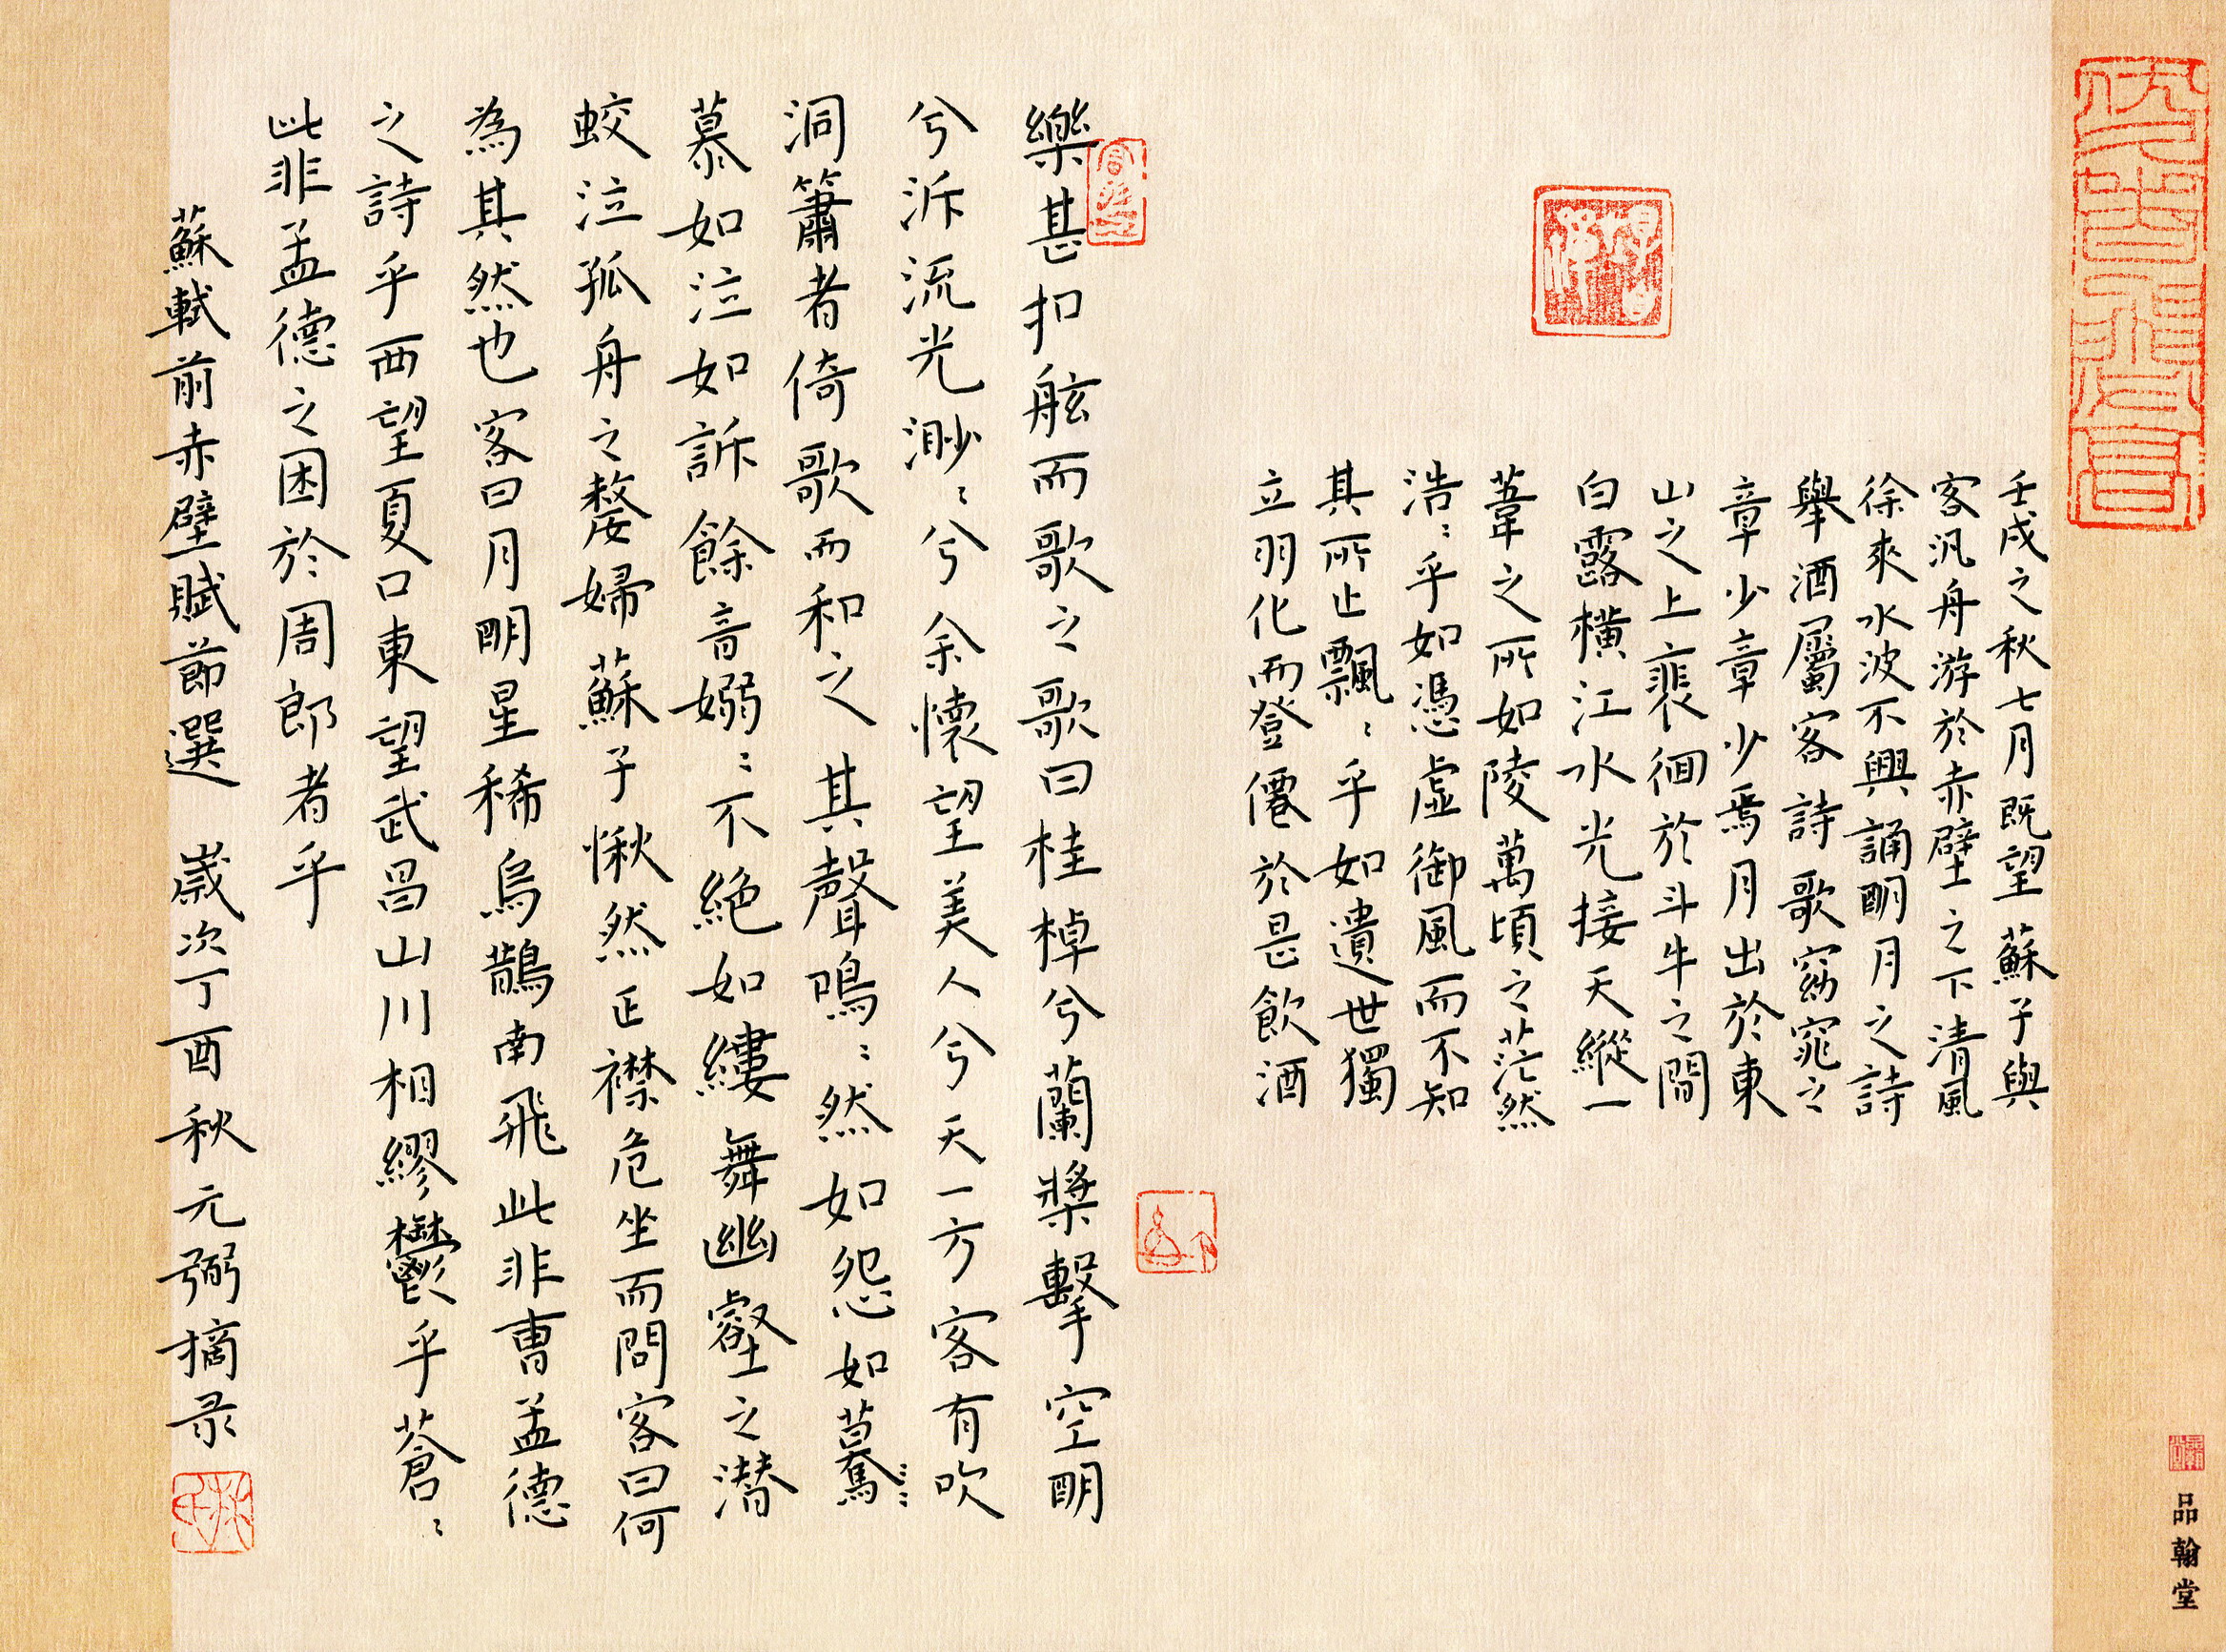 壬戌之秋七月既望蘇子與
客汎舟游於赤壁之下清風
徐來水波不興誦明月之詩
舉酒屬客詩歌窈窕之
章少章少焉月出於東
山之上裴徊於斗牛之間
白露橫江水光接天縱一
葦之所如陵萬頃之茫然
浩〻乎如馮虛御風而不知
其所止飄〻乎如遺世獨
立羽化而登僊於是飲酒
樂甚扣舷而歌之歌曰桂棹兮蘭槳擊空明
兮泝流光渺〻兮余懷望美人兮天一方客有吹
洞簫者倚歌而和之其聲鳴〻然如怨如
慕如泣如訴餘音嫋〻不絕如縷舞幽壑之潛
蛟泣孤舟之嫠婦蘇子愀然正襟危坐而問客曰何
為其然也客曰月明星稀烏鵲南飛此非曹孟德
之詩乎西望夏口東望武昌山川相繆鬱乎蒼〻
此非孟德之困於周郎者乎
蘇軾前赤壁賦節選 歲次丁酉秋元弼摘录
品翰堂